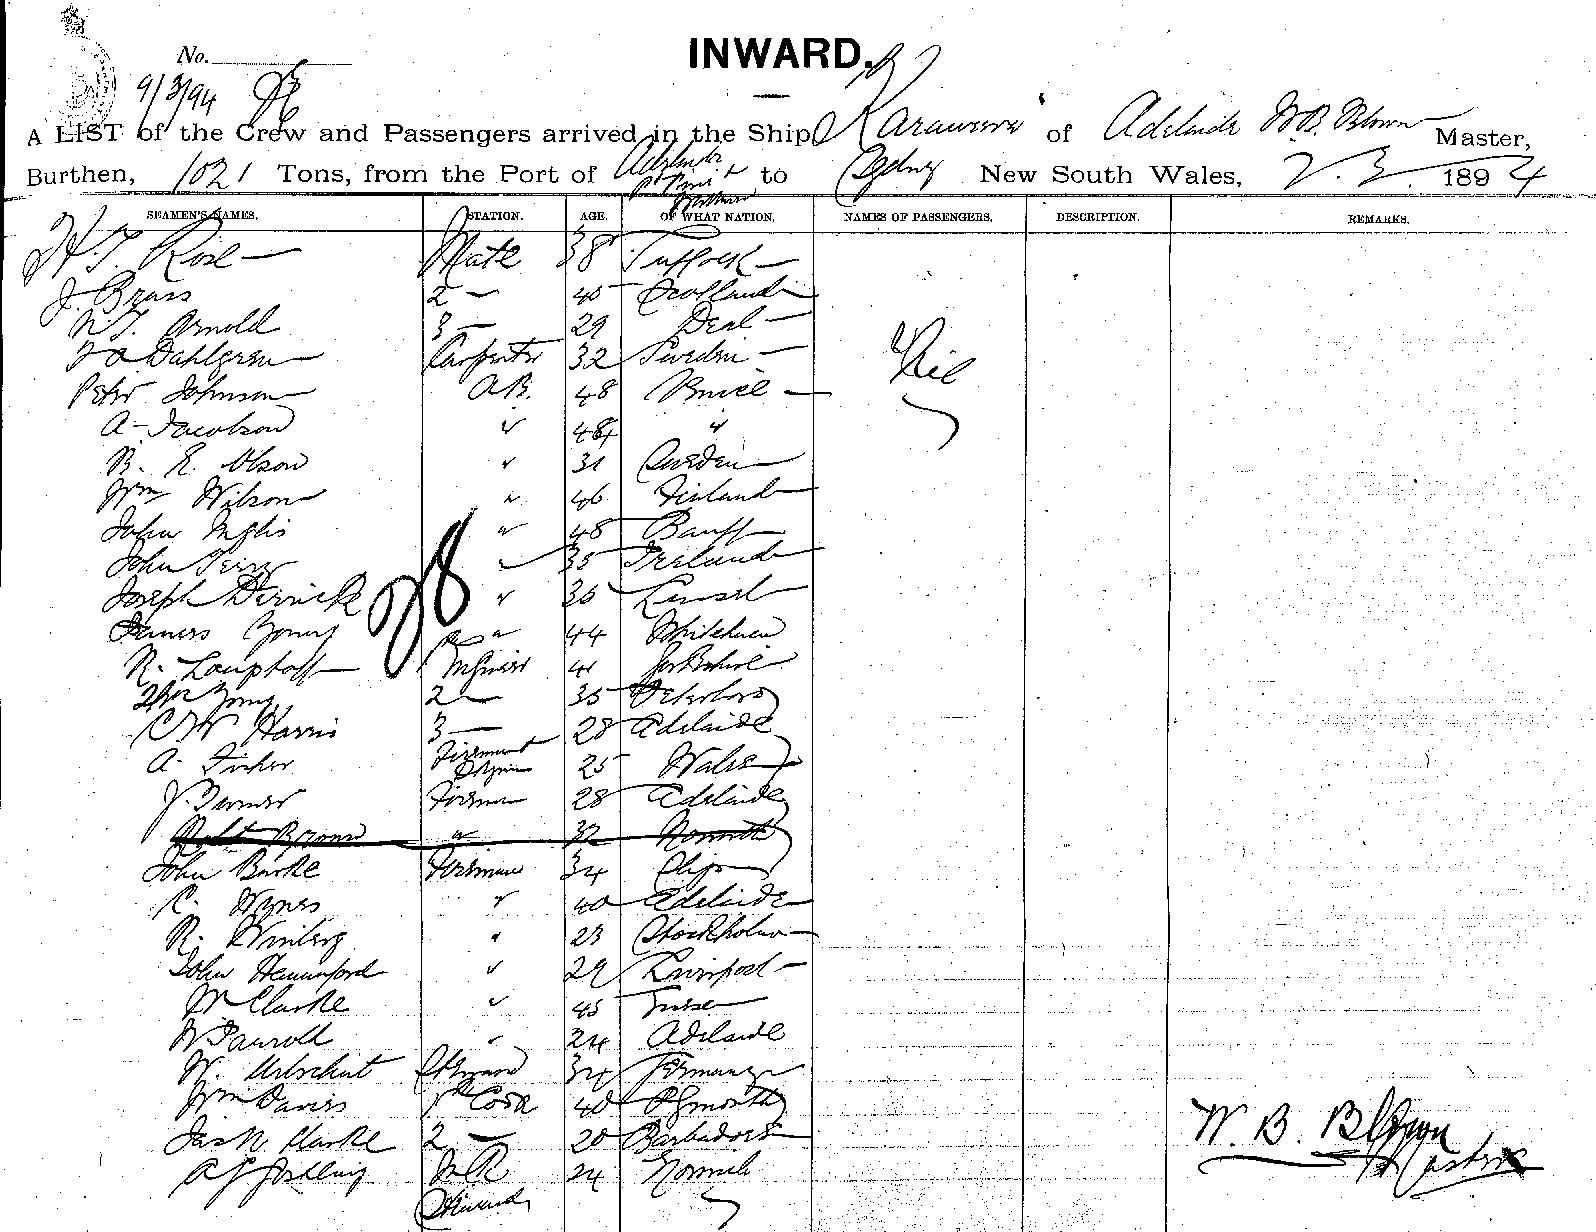 INWARD.
No.
9/3/94
A LIST of the Crew and Passengers arrived in the Ship of Adelaide W.B. Blown Master,
Burthen, 1021 Tons, from the Port of Adelaide to Sydney New South Wales, 7. 3. 1894
SEAMEN'S NAMES. STATION. AGE. OF WHAT NATION. NAMES OF PASSENGERS. DESCRIPTION. REMARKS.
H.J. Rose Mate 38 Suffolk
J. Brass 2 40 Scotland
Arnold 3 29 Deal
Dahlgren Carpenter 32 Sweden
Peter Johnson A.B. 48 Nil
A. Jacobson " 48 "
B. E. Olson " 31 Sweden
Wm Wilson " 46 Finland
John Inglis " 48 Banff
John Terry " 35 Ireland
Joseph Derrick "
28
James Young " 44 Whitehaven
R. 41 Yorkshire
Young 2 35 Peterboro
C W Harris 3 28 Adelaide
A. Fisher Fireman 25 Wales
J. Turner Fireman 28 Adelaide
Robt Brown " 32
John Burke Fireman 34
C. Wynes " 40 Adelaide
R. Winberg " 23 Stockholm
John " 29 Liverpool
W Clarke " 45
W 24 Adelaide
W. Steward 34 Germany
Wm Davies Cook 40 Plymouth
Jas N. Clarke 2 20 Barbadoes
24
Steward
W. B. Blown
Master